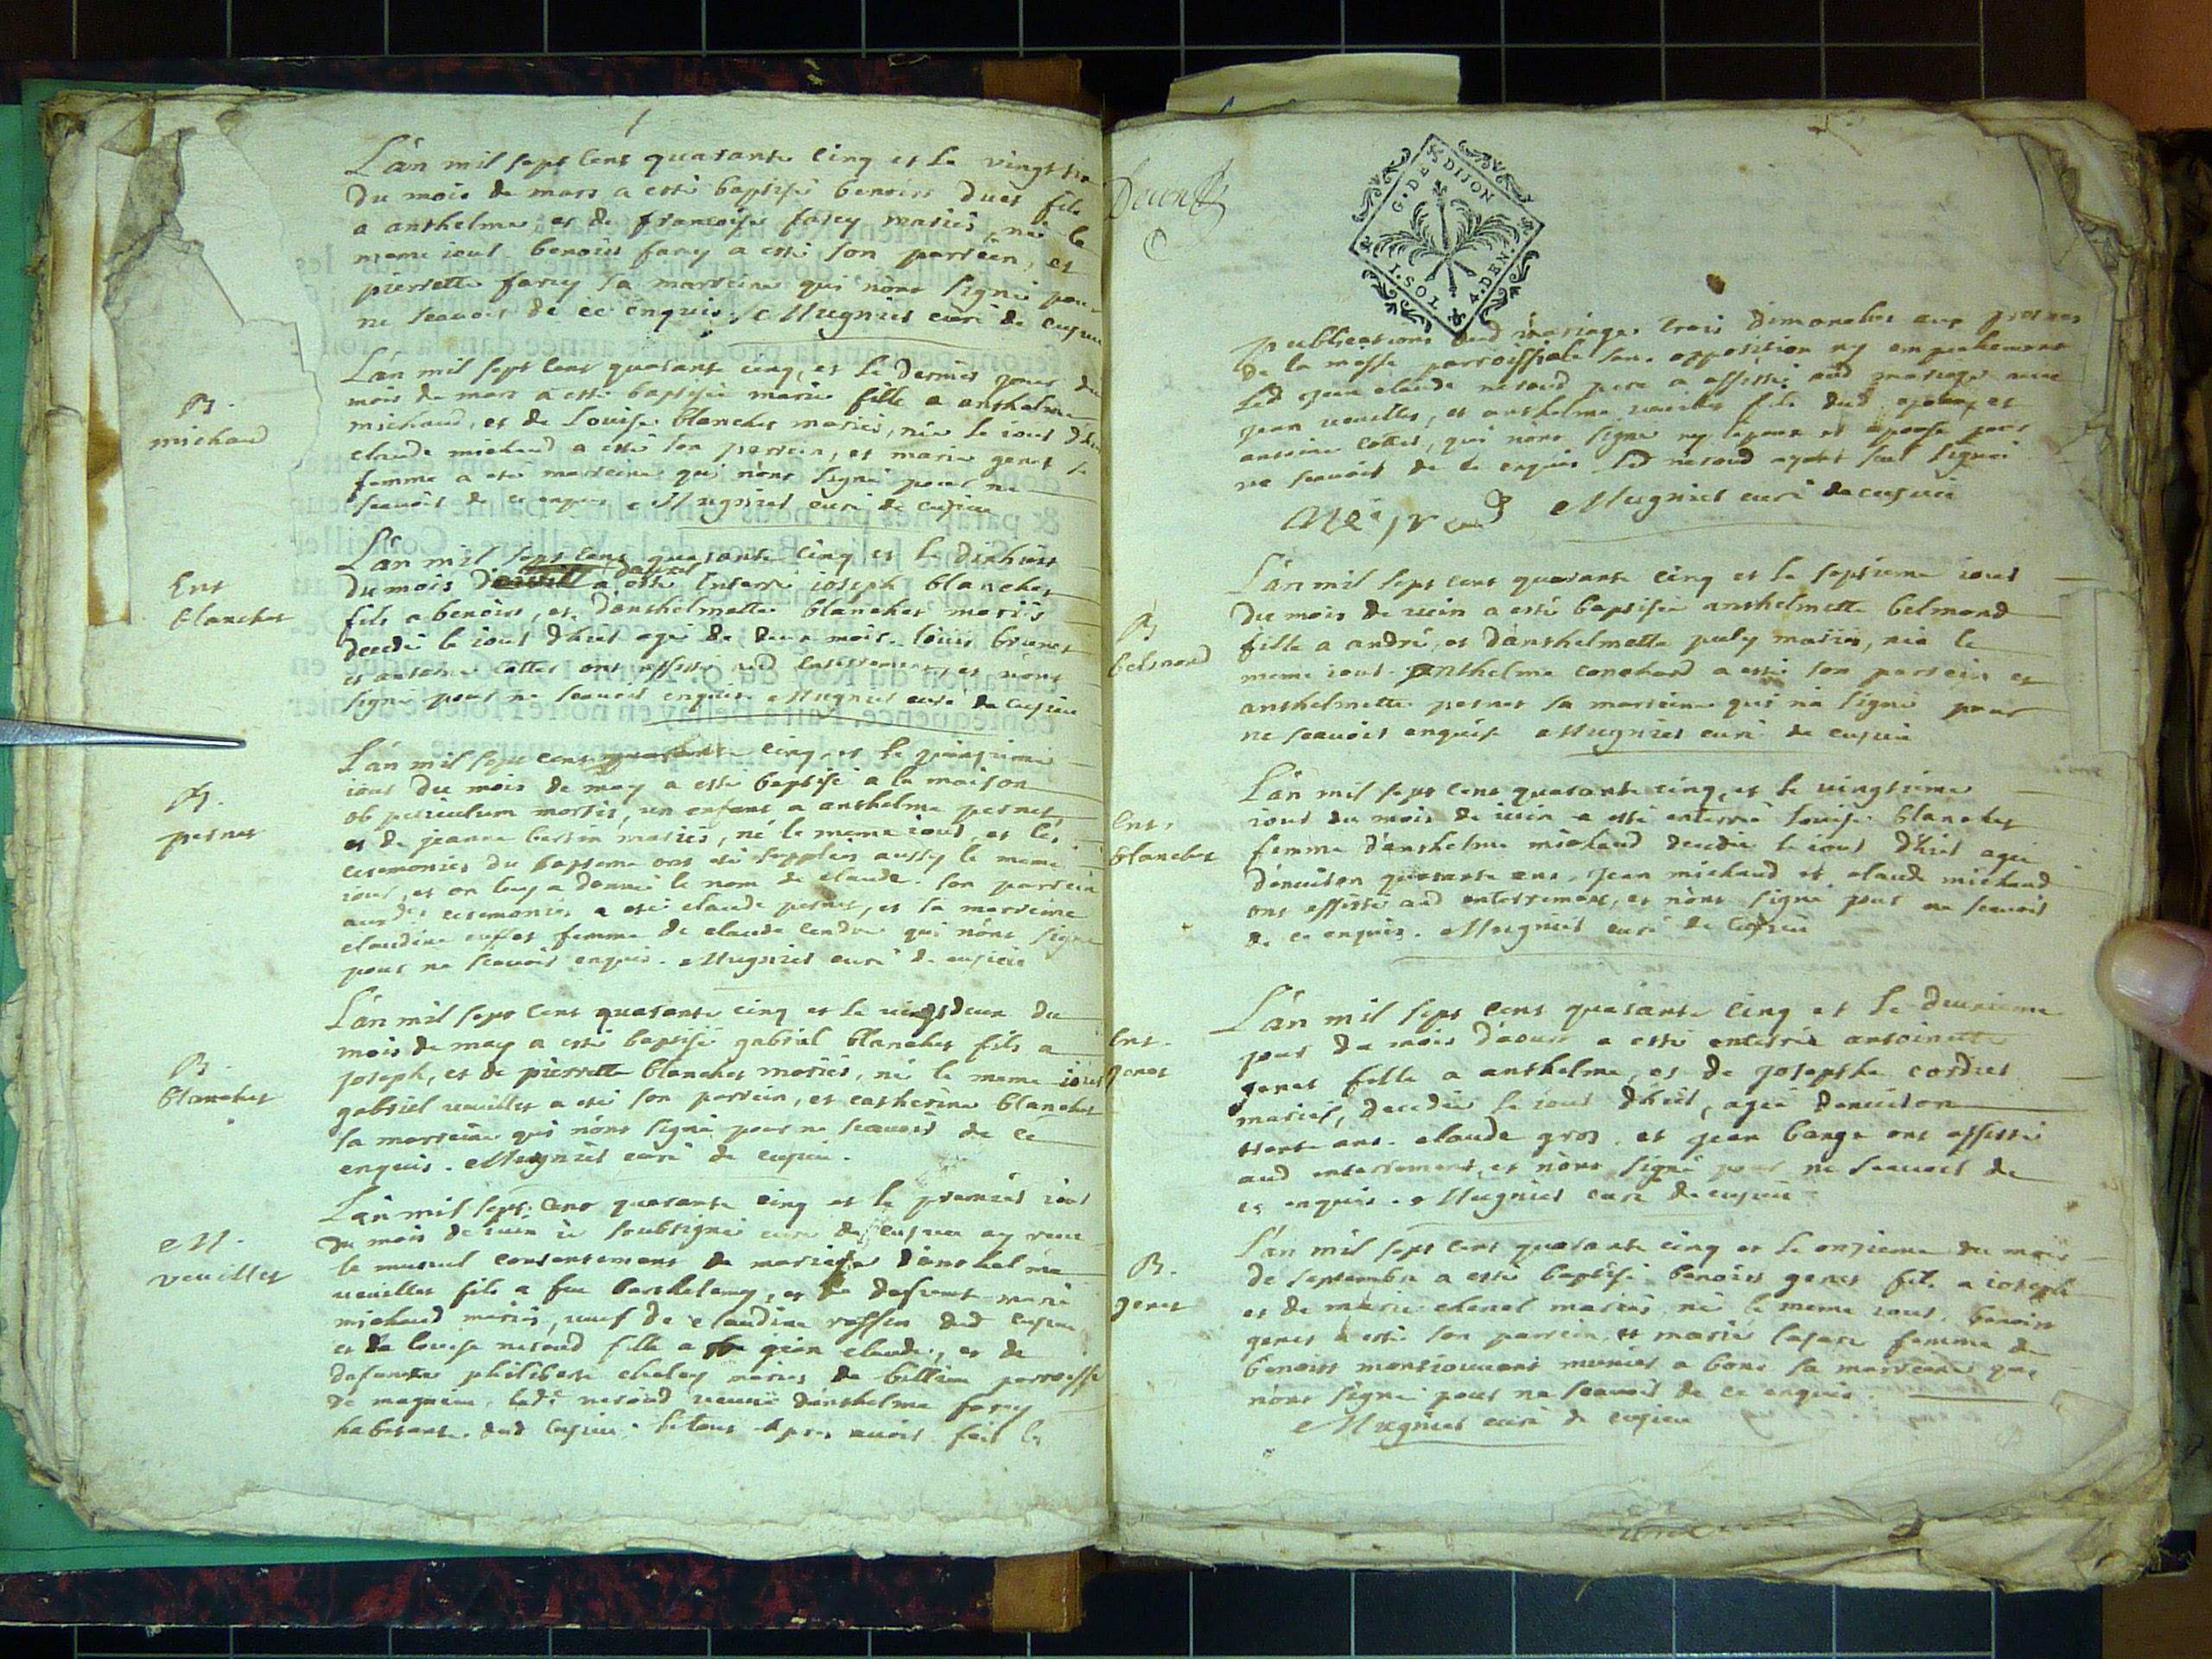 L'an mil sept cent quarante cinq et le vingt
du mois de mars a esté baptisé benoist duet fils
a anthelme et de francoise farcy mariés, né le
meme iour benoist farcy a esté son parrein, et
pierrette farcy sa marreine qui nont signé pour
ne scavoir de ce enquis. Mugnier curé de cuzieu
B.
michaud
L'an mil sept cent quarante cinq, et le dernier jour du
mois de mars a esté baptisée marie fille a anthelme
michaud, et de Louise blanchet mariés, née le iour d'hier
claude michaud a esté son parrein, et marie genet sa
femme a esté marreine qui n'ont signé pour ne
scavoir de ce enquis Mugnier curé de cuzieu
Ent
blanchet
L'an mil sept cent quarante cinq et le dixhuit
du mois d'avril a esté enterré ioseph blanchet
fils a benoist, et d'anthelmette blanchet mariés
decedé le iour d'hier agé de deux mois. louis brunet
et antoine cottet ont assisté aud enterrement, et n'ont
signé pour ne scavoir enquis. Mugnier curé de cuzieu
B.
pernet
L'an mil sept cent quarante cinq, et le
iour du mois de may a esté baptisé a la maison
ob periculum mortis, un enfant a anthelme pernet,
et de jeanne bertin mariés, né le meme iour, et les
ceremonies du bapteme ont été supplées aussy le meme
iour, et on luy a donné le nom de claude. son parrein
aux des ceremonies a esté claude pernet, et la marreine
claudine femme de claude cendre qui n'ont signé
pour ne scavoir enquis. Mugnier curé de cuzieu
B.
blanchet
L'an mil sept cent quarante cinq et le vingtdeux du
mois de may a esté baptisé gabriel blanchet fils a
joseph, et de pierrette blanchet mariés, né le meme iour
gabriel veuillet a esté son parrein, et catherine blanchet
sa marreine qui n'ont signé pour ne scavoir de ce
enquis. Mugnier curé de cuzieu.
M.
veuillet
L'an mil sept cent quarante cinq et le premier iour
du mois de iuin ie soubsigné curé de cuzieu ay receu
le mutuel consentement de mariage d'anthelme
veuillet fils a feu barthelemy, et de defunte marie
michaud mariés, veuf de claudine rossen dud cuzieu
et de louise neraud fille a jean claude, et de
defuncte philiberte chaley mariés de billieu parroisse
de magnieu, lade neraud veuve d'anthelme farcy
habitants dud cuzieu. le tout apres avoir fait les
G. DE DIJON
I. SOL 4. DEN.
publications dud mariage trois dimanches aux prosnes
de la messe parroissiale sans opposition ny empechement
led jean claude neraud pere a assisté aud mariage avec
jean veuillet, et anthelme veuillet fils dud epoux et
antoine cottet, qui n'ont signé ny lepoux et epouse pour
ne scavoir de ce enquis led neraud ayant seul signé
Mugnier curé de cuzieu
B
belmond
L'an mil sept cent quarante cinq et le septieme iour
du mois de iuin a esté baptisée anthelmette belmond
fille a andré, et d'anthelmette puly mariés, née le
meme iour. anthelme conchard a esté son parrein et
anthelmette pernet sa marreine qui n'a signé pour
ne scavoir enquise Mugnier curé de cuzieu
Ent.
blanchet
L'an mil sept cent quarante cinq, et le vingtieme
iour du mois de iuin a esté enterrée louise blanchet
femme d'anthelme michaud decedée le iour d'hier agée
d'environ quarante ans. Jean michaud et claude michaud
ont assisté aud enterrement, et n'ont signé pour ne scavoir
de ce enquis. Mugnier curé de cuzieu
Ent.
genet
L'an mil sept cent quarante cinq et le deuxieme
jour du mois d'aoust a esté enterrée antoinette
genet fille a anthelme, et de josepthe cordier
mariés, decedée le iour d'hier, agée d'environ
trente ans. claude groz, et jean bange ont assisté
aud enterrement, et n'ont signé pour ne scavoir de
ce enquis. Mugnier curé de cuzieu
B.
genet
L'an mil sept cent quarante cinq et le onzieme du mois
de septembre a esté baptisé benoist genet fils a ioseph
et de marie chenel mariés, né le meme iour. benoist
genet a esté son parrein, et marie femme de
benoist a bons sa marreine qui
n'ont signé pour ne scavoir de ce enquis.
Mugnier curé de cuzieu